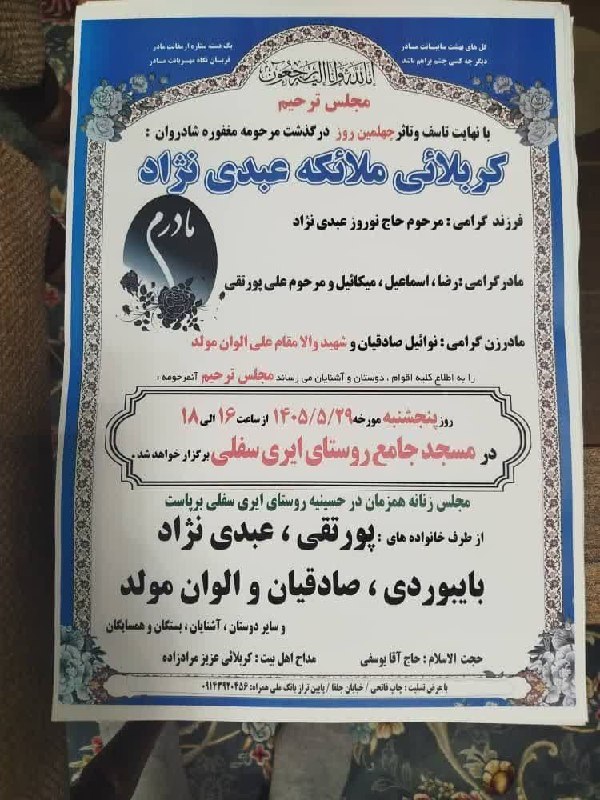 گل های بهشت سایبانت مادر
یک دسته ستاره ارمغانت مادر
دیگر چه کسی چشم براهم باشد
قربان نگاه مهربانت مادر
انا لله و انا الیه راجعون
مجلس ترحیم
با نهایت تاسف وتاثر چهلمین روز درگذشت مرحومه مغفوره شادروان :
کربلائی ملائکه عبدی نژاد
مادرم
فرزند گرامی : مرحوم حاج نوروز عبدی نژاد
مادرگرامی :رضا ، اسماعیل ، میکائیل و مرحوم علی پورتقی
مادرزن گرامی : نوائیل صادقیان و شهید والا مقام علی الوان مولد
را به اطلاع کلیه اقوام ، دوستان و آشنایان می رساند مجلس ترحیم آنمرحومه :
روز پنجشنبه مورخه ۱۴۰۵/۵/۲۹ از ساعت ۱۶ الی ۱۸
در مسجد جامع روستای ایری سفلی برگزار خواهد شد .
مجلس زنانه همزمان در حسینیه روستای ایری سفلی برپاست
از طرف خانواده های : پورتقی ، عبدی نژاد
بایبوردی ، صادقیان و الوان مولد
و سایر دوستان ، آشنایان ، بستگان و همسایگان
حجت الاسلام : حاج آقا یوسفی
مداح اهل بیت : کربلائی عزیز مرادزاده
با عرض تسلیت : چاپ فاتحی / خیابان جلفا / پایین تراز بانک ملی همراه: ۰۹۱۴۳۹۲۰۴۵۶